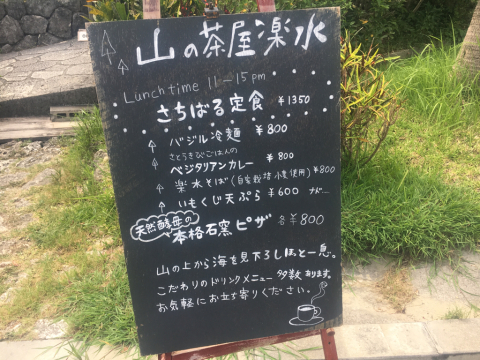 山の茶屋楽水
Lunch time 11-15pm
さちばる定食 ¥1350
バジル冷麺 ¥800
さとうきびごはんの
ベジタリアンカレー ¥800
楽水そば(自家栽培小麦使用)¥800
いもくじ天ぷら ¥600 ナド…
天然酵母の
本格石窯ピザ 各¥800
山の上から海を見下ろしほっと一息。
こだわりのドリンクメニュー多数あります。
お気軽にお立ち寄りください。